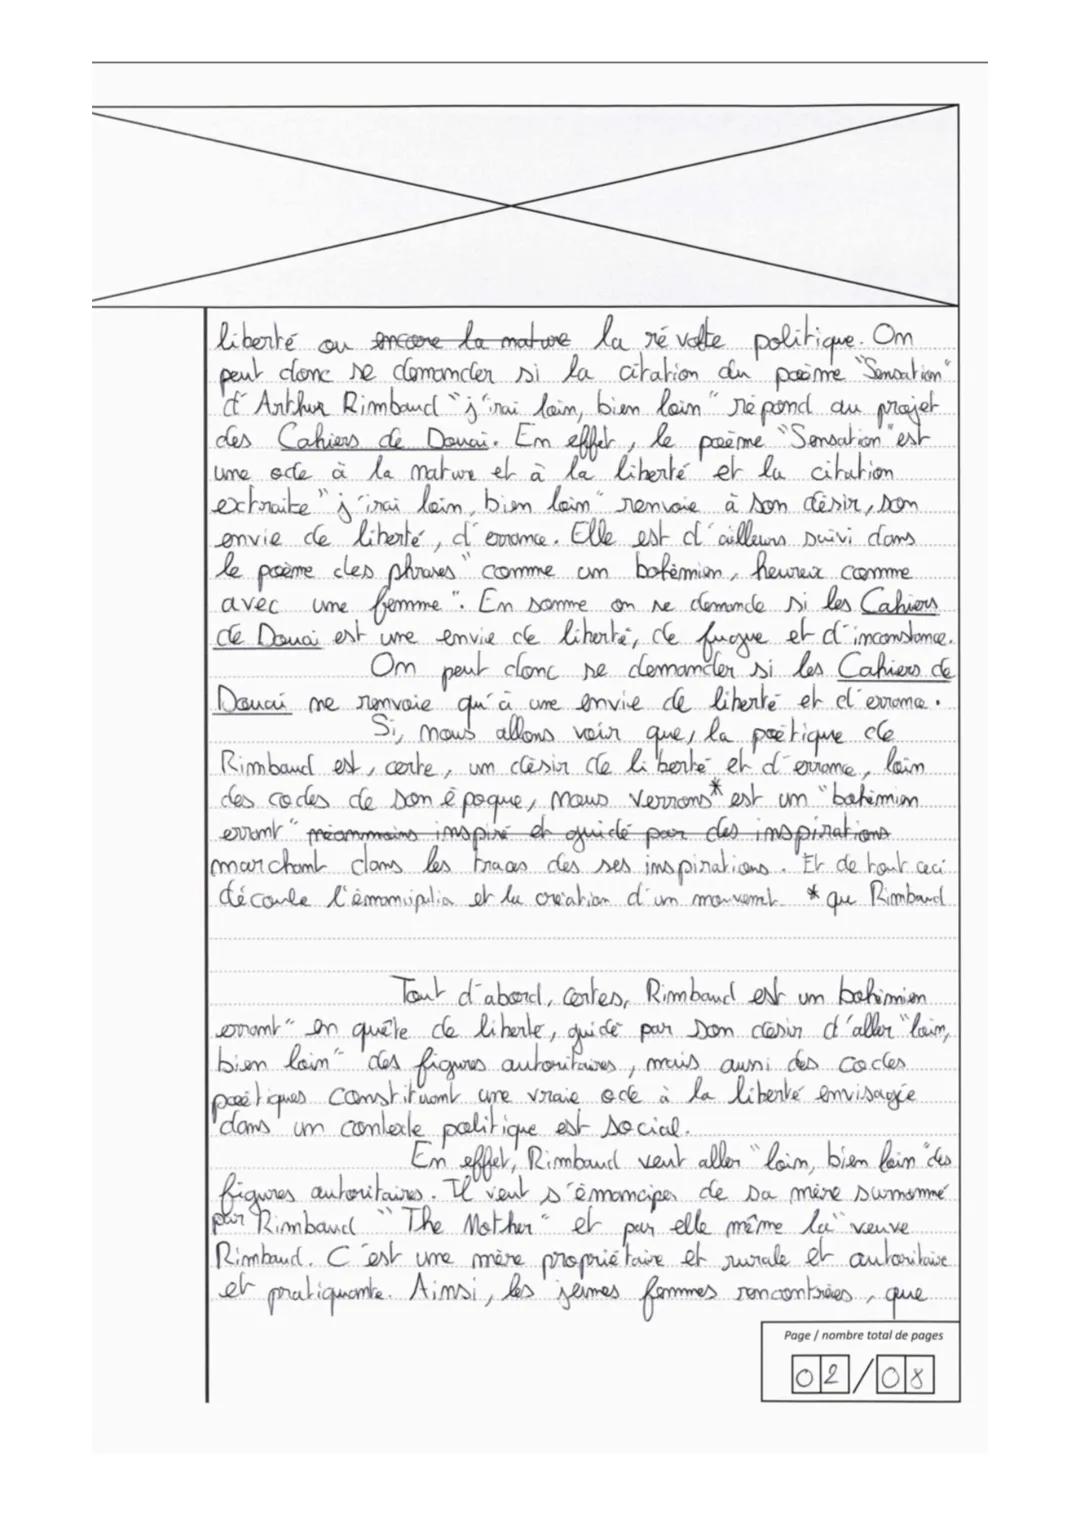 liberté ou encore la nature la révolte politique. On
peut donc se demander si la citation du poème "Sensation"
d'Arthur Rimbaud "j'irai loin, bien loin" répond au projet
des Cahiers de Douai. En effet, le poème "Sensation" est
une ode à la nature et à la liberté et la citation
extraite "j'irai loin, bien loin" renvoie à son désir, son
envie de liberté, d'errance. Elle est d'ailleurs suivi dans
le poème des phrases "comme un bohémien, heureux comme
avec une femme". En somme on se demande si les Cahiers
de Douai est une envie de liberté, de fugue et d'inconstance.
On peut donc se demander si les Cahiers de
Douai ne renvoie qu'à une envie de liberté et d'errance.
Si, nous allons voir que, la poétique de
Rimbaud est, certe, un désir de liberté et d'errance, loin
des codes de son époque, nous verrons* est un "bohémien
errant" néanmoins inspiré et guidé par des inspirations
marchant dans les traces des ses inspirations. Et de tout ceci
découle l'émancipatio et la création d'un mouvemt. * que Rimbaud
Tout d'abord, certes, Rimbaud est un bohémien
errant" en quête de liberté, guidé par son désir d'aller "loin,
bien loin" des figures autoritaires, mais aussi des codes
poétiques constituant une vraie ode à la liberté envisagée
dans un contexte politique est social.
En effet, Rimbaud veut aller "loin, bien loin" des
figures autoritaires. Il veut s'émanciper de sa mère surnommé
par Rimbaud "The Mother" et par elle même la "veuve
Rimbaud. C'est une mère propriétaire et rurale et autoritaire
et pratiquante. Ainsi, les jeunes femmes rencontrées, que
Page / nombre total de pages
02/08